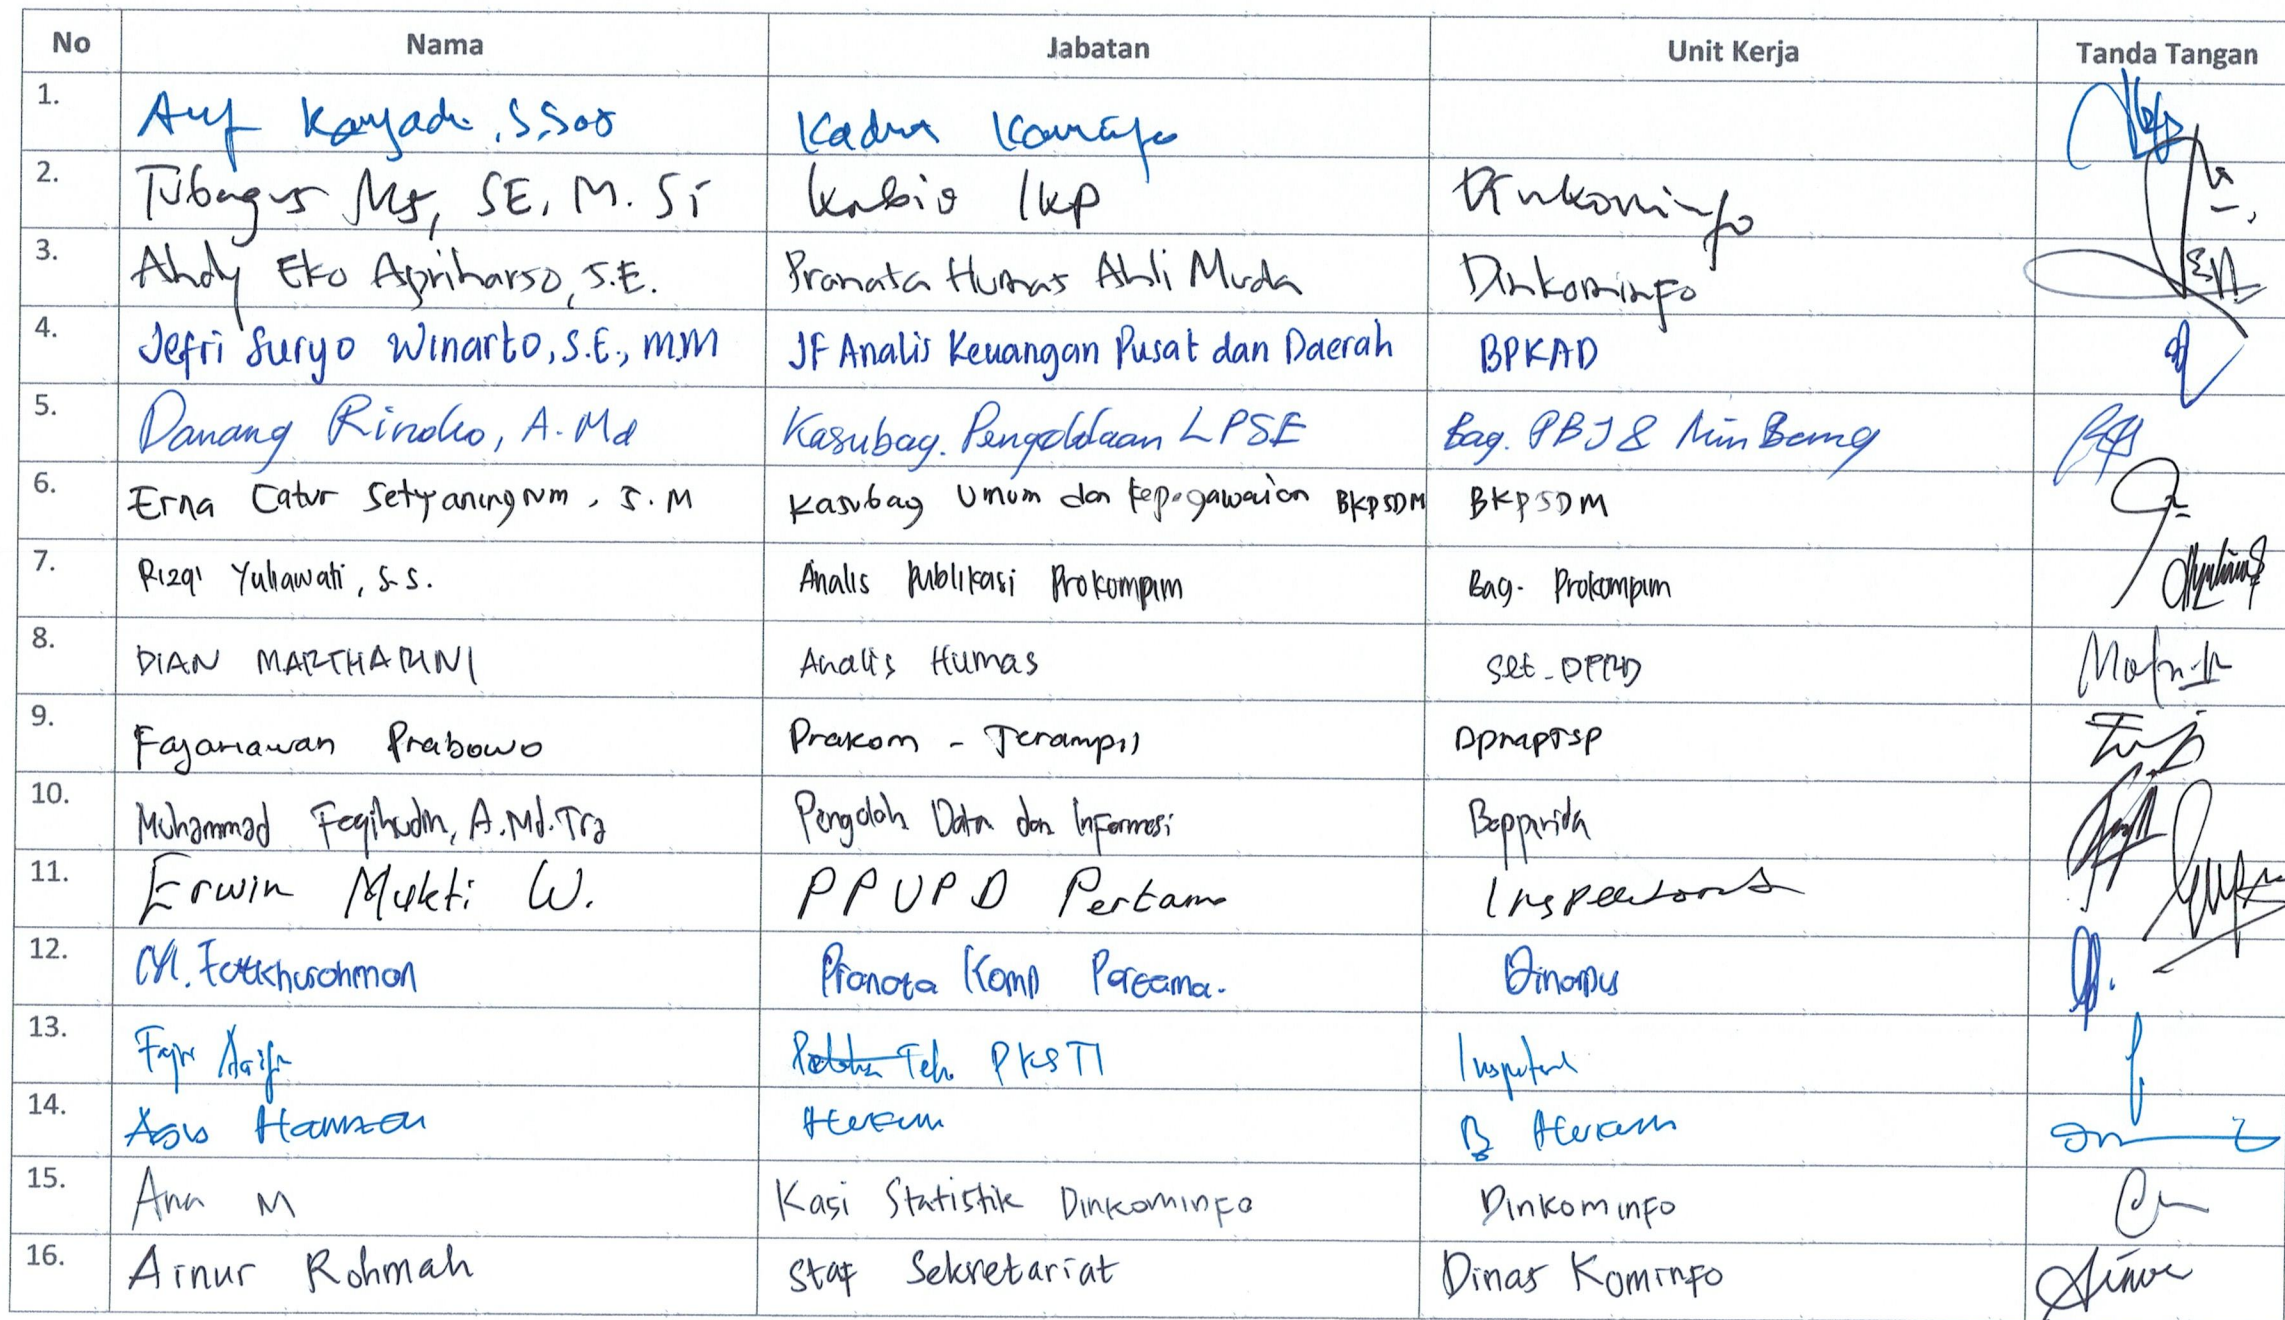 No Nama Jabatan Unit Kerja Tanda Tangan
1. Karyadi, S.Sos Kadin Kominfo
2. Tubagus SE, M.Si Kabid IKP Dinkominfo
3. Ahdy Eko Apriharso, S.E. Pranata Humas Ahli Muda Dinkominfo
4. Jefri Suryo Winarto, S.E., M.M JF Analis Keuangan Pusat dan Daerah BPKAD
5. Danang Rinoko, A.Md Kasubag. Pengelolaan LPSE Bag. PBJ & MinBang
6. Erna Catur Setyaningrum, S.M Kasubag Umum dan Kepegawaian BKPSDM BKPSDM
7. Rizqi Yuliawati, S.S. Analis Publikasi Prokompim Bag. Prokompim
8. DIAN MARTHARINI Analis Humas Set-DPRD
9. Fajariawan Prabowo Prakom - Terampil DPMPTSP
10. Muhammad Feqihudin, A.Md.Tra Pengolah Data dan Informasi Bapperida
11. Erwin Mukti W. PPUPD Pertama Inspektorat
12. M. Fatkhurohman Pranata Komp Pertama. Dinarpus
13. Fajar PKSTI Inspektorat
14. Hukum B Hukum
15. Ana M Kasi Statistik Dinkominfo Dinkominfo
16. Ainur Rohmah Staf Sekretariat Dinas Kominfo